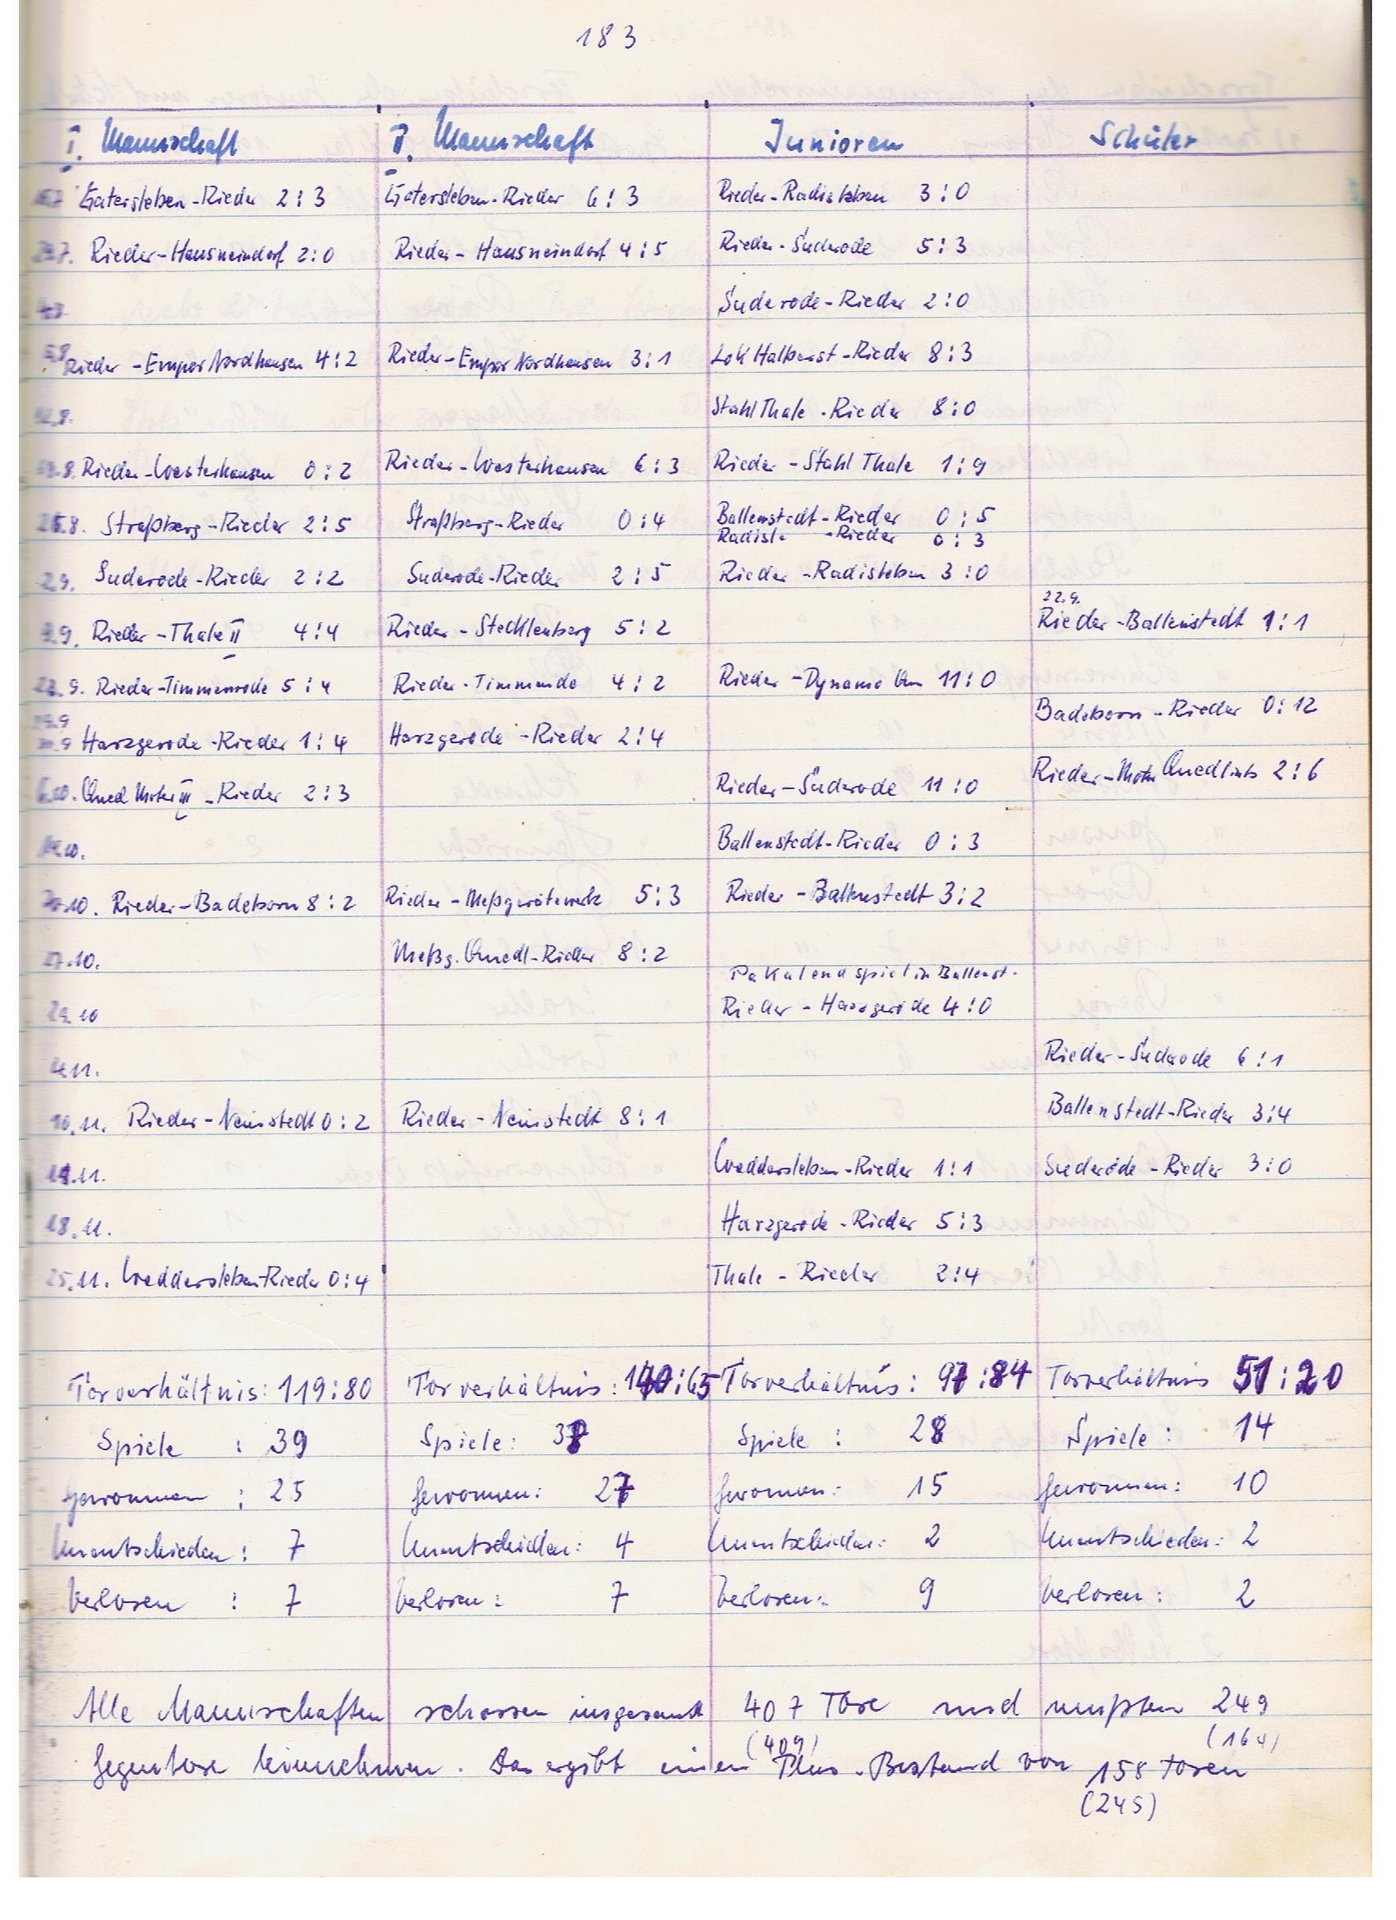 183
I. Mannschaft II. Mannschaft Junioren Schüler
Gatersleben-Rieder 2:3 Gatersleben-Rieder 6:3 Rieder-Radisleben 3:0
29.7. Rieder-Hausneindorf 2:0 Rieder-Hausneindorf 4:5 Rieder-Suderode 5:3
Suderode-Rieder 2:0
5.8. Rieder-Empor Nordhausen 4:2 Rieder-Empor Nordhausen 3:1 Lok Halberst-Rieder 8:3
12.8. Stahl Thale-Rieder 8:0
19.8. Rieder-Westerhausen 0:2 Rieder-Westerhausen 6:3 Rieder-Stahl Thale 1:9
26.8. Straßberg-Rieder 2:5 Straßberg-Rieder 0:4 Ballenstedt-Rieder 0:5
Radisl-Rieder 0:3
2.9. Suderode-Rieder 2:2 Suderode-Rieder 2:5 Rieder-Radisleben 3:0
22.9.
9.9. Rieder-Thale II 4:4 Rieder-Stecklenberg 5:2 Rieder-Ballenstedt 1:1
9. Rieder-Timmenrode 5:4 Rieder-Timmende 4:2 Rieder-Dynamo 11:0
29.9
Badeborn-Rieder 0:12
30.9 Harzgerode-Rieder 1:4 Harzgerode-Rieder 2:4
Rieder-Motor Quedlinb 2:6
6.10. Qued Motor III-Rieder 2:3 Rieder-Suderode 11:0
14.10. Ballenstedt-Rieder 0:3
20.10. Rieder-Badeborn 8:2 Rieder-Meßgerätewerk 5:3 Rieder-Ballenstedt 3:2
27.10. Meßg. Quedl-Rieder 8:2
Pokalendspiel in Ballenst.
29.10 Rieder-Harzgerode 4:0
4.11. Rieder-Suderode 6:1
10.11. Rieder-Neinstedt 0:2 Rieder-Neinstedt 8:1 Ballenstedt-Rieder 3:4
11.11. Weddersleben-Rieder 1:1 Suderode-Rieder 3:0
18.11. Harzgerode-Rieder 5:3
25.11. Weddersleben-Rieder 0:4 Thale-Rieder 2:4
Torverhältnis: 119:80 Torverhältnis: 140:65 Torverhältnis: 97:84 Torverhältnis 51:20
Spiele: 39 Spiele: 38 Spiele: 28 Spiele: 14
gewonnen: 25 gewonnen: 27 gewonnen: 15 gewonnen: 10
Unentschieden: 7 Unentschieden: 4 Unentschieden: 2 Unentschieden: 2
Verloren: 7 Verloren: 7 Verloren: 9 Verloren: 2
Alle Mannschaften schossen insgesamt 407 Tore und mußten 249
(409) (164)
Gegentore hinnehmen. Das ergibt einen Plus-Bestand von 158 Toren
(245)